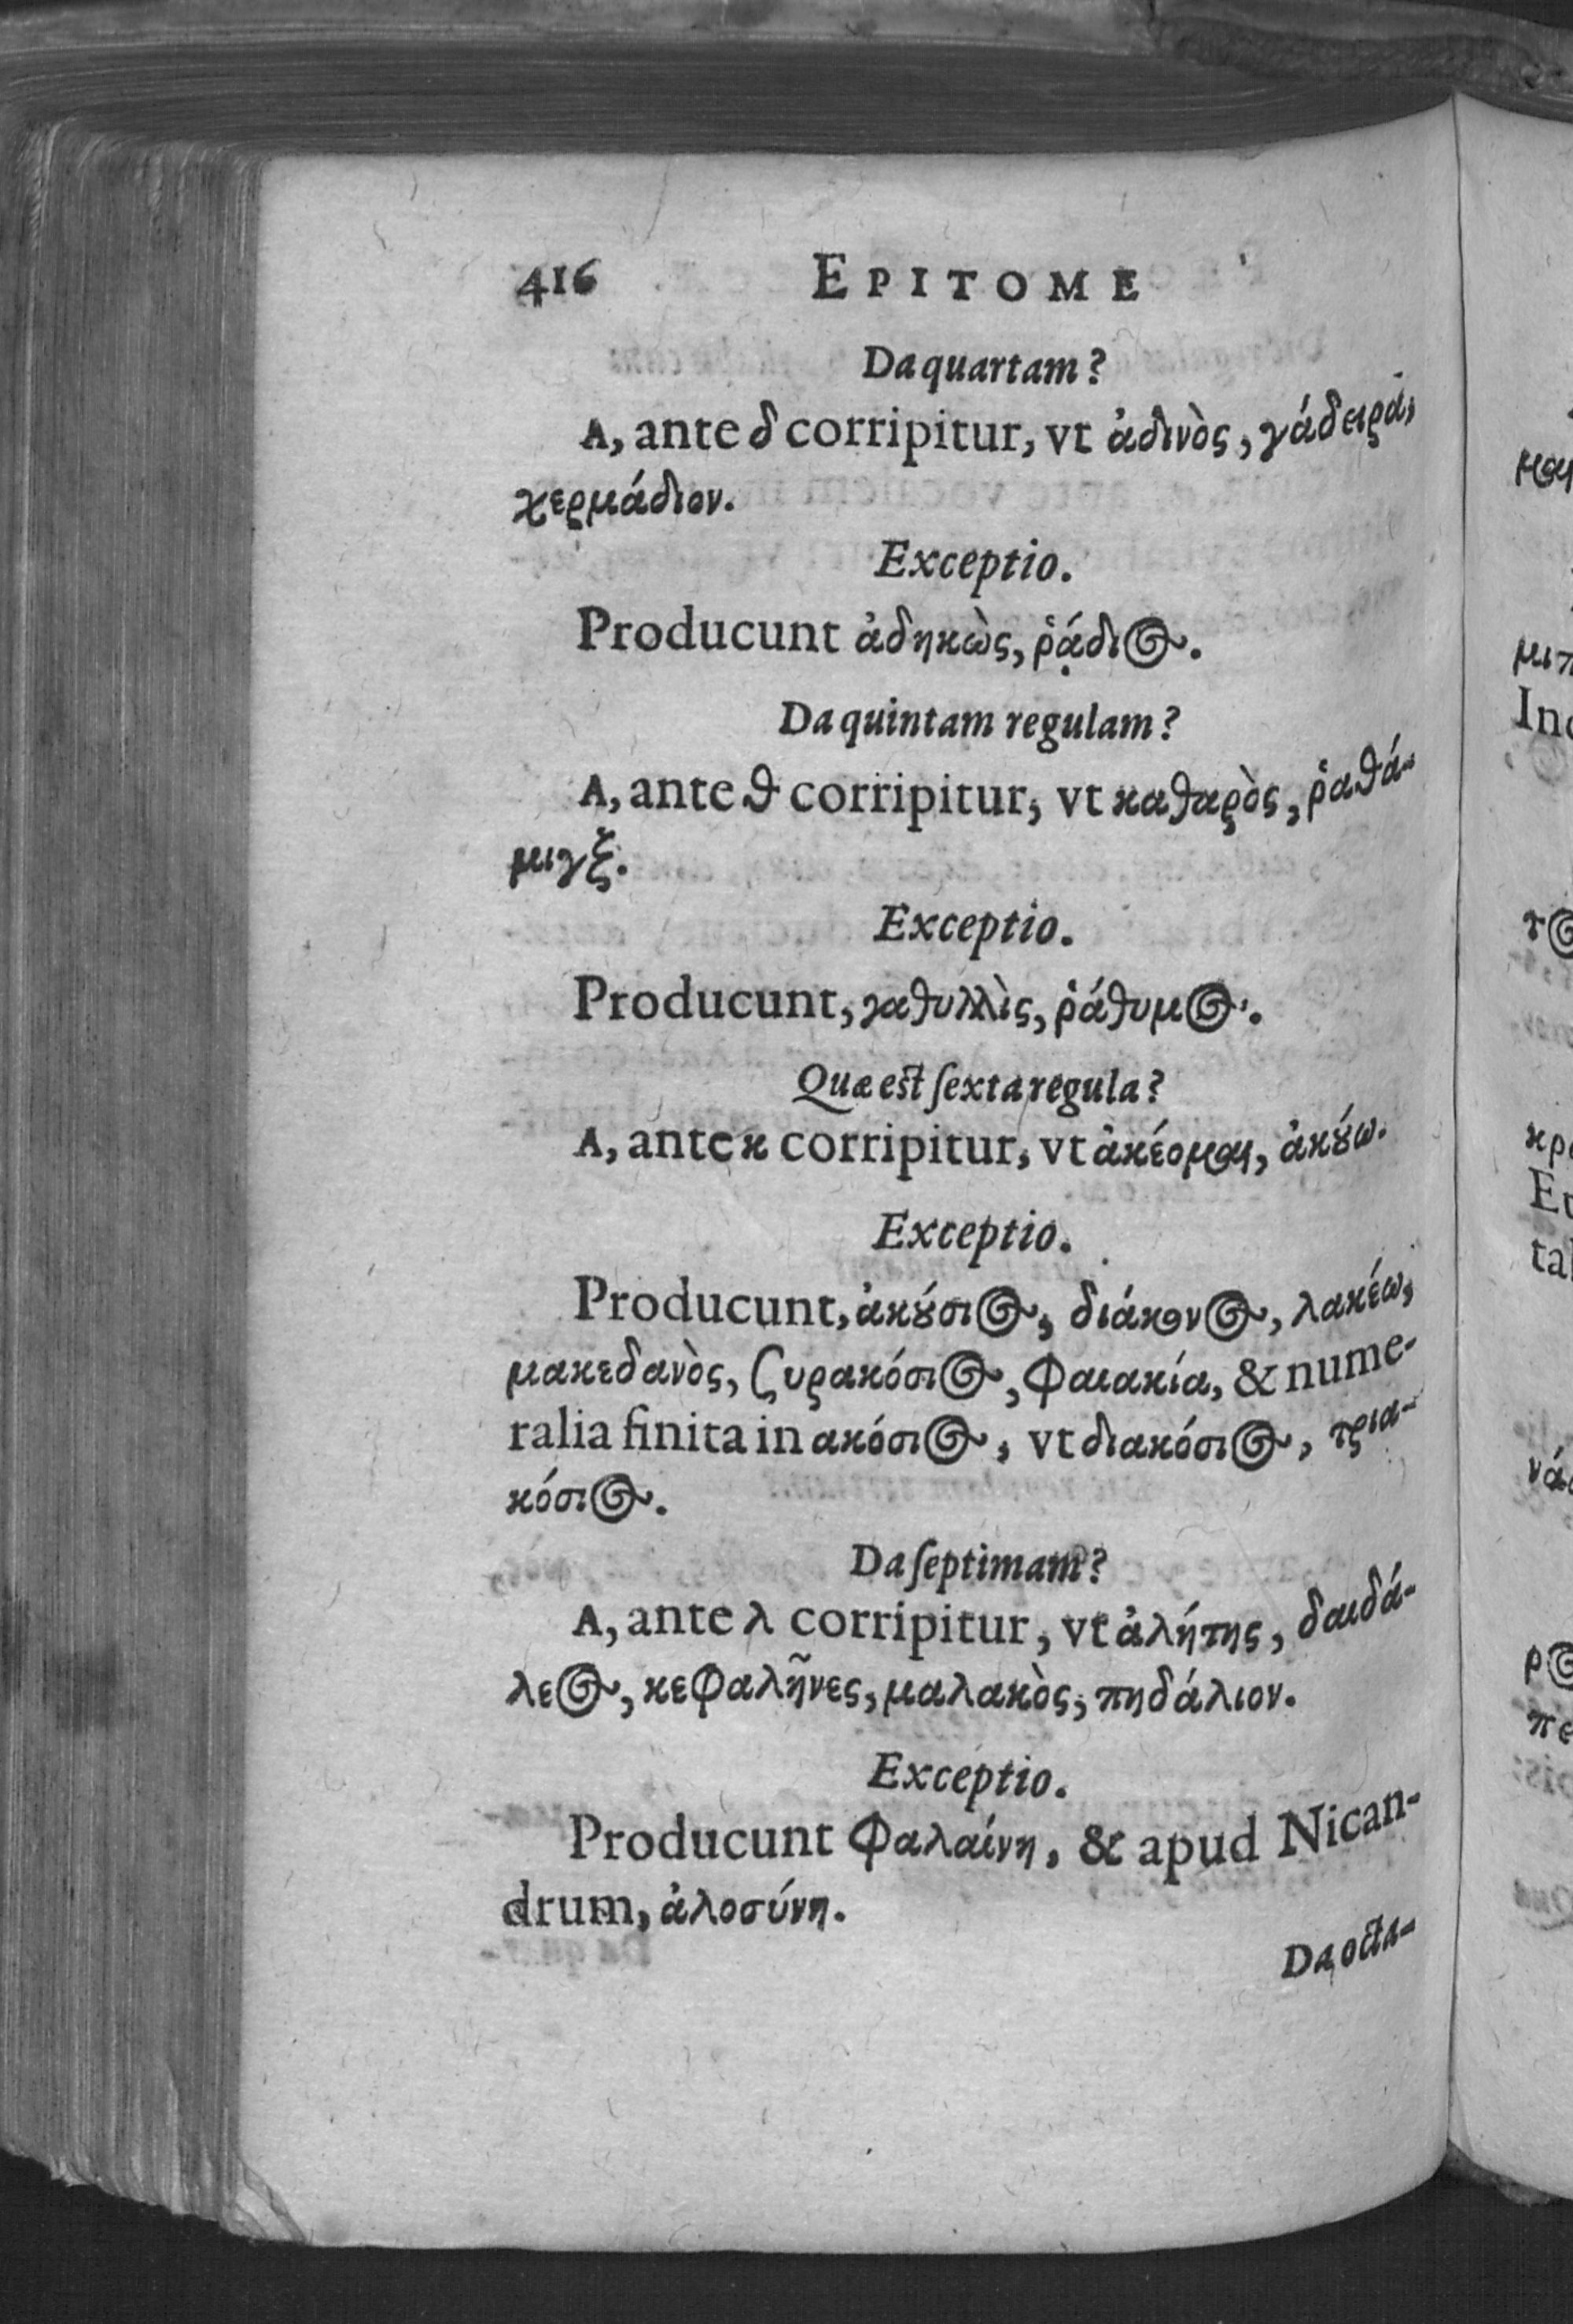 416 EPITOME
Da quartam?
A, ante δ corripitur, vt ἀδινὸς, γάδειρα,
χερμάδιον.
Exceptio.
Producunt ἀδηκὼς, ῥᾴδιος.
Da quintam regulam?
A, ante ϑ corripitur, vt καθαρὸς, ῥαθά-
μιγξ.
Exceptio.
Producunt, γαθυλλὶς, ῥάθυμος.
Quæ est ſexta regula?
A, ante κ corripitur, vt ἀκέομαι, ἀκȣ́ω.
Exceptio.
Producunt, ἀκȣ́σιος, διάκονος, λακέω,
μακεδανὸς, ςυρακόσιος, Φαιακία, & nume-
ralia finita in ακόσιος, vt διακόσιος, τρια-
κόσιος.
Da ſeptimam?
A, ante λ corripitur, vt ἀλήτης, δαιδά-
λεος, κεφαλῆνες, μαλακὸς, πηδάλιον.
Exceptio.
Producunt Φαλαίνη, & apud Nican-
drum, ἀλοσύνη.
Da octa-